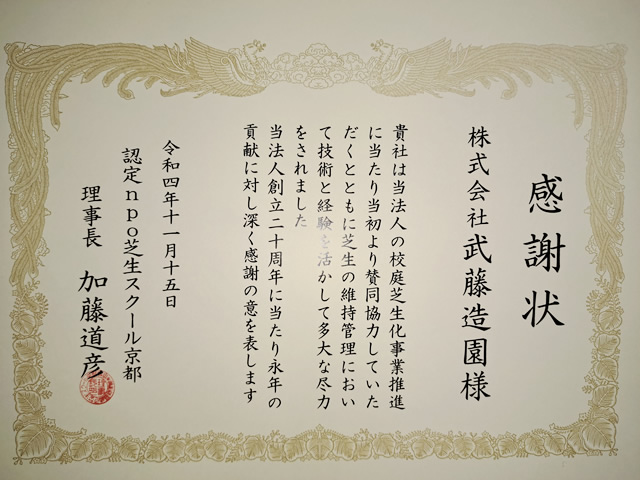 感謝状
株式会社武藤造園様
貴社は当法人の校庭芝生化事業推進
に当たり当初より賛同協力していた
だくとともに芝生の維持管理におい
て技術と経験を活かして多大な尽力
をされました
当法人創立二十周年に当たり永年の
貢献に対し深く感謝の意を表します
令和四年十一月十五日
認定npo芝生スクール京都
理事長 加藤道彦